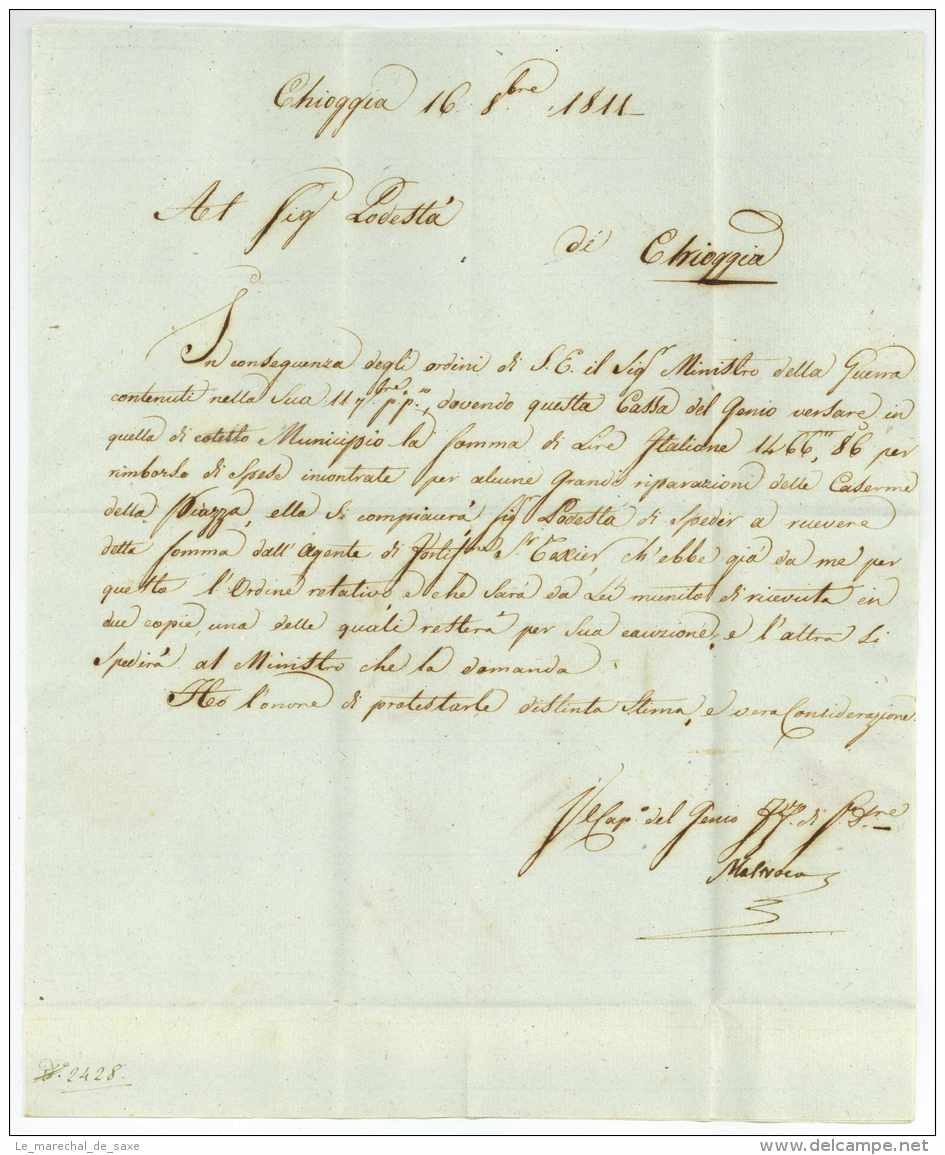 Chioggia 16. 8bre 1811
Al Sigr Podestà
di Chioggia
In conseguenza degli ordini di S.E. il Sigr Ministro della Guerra
contenuti nella Sua 11 7bre p.p.o, dovendo questa Cassa del Genio versare in
quella di cotesto Municipio la somma di Lire Italiane 1466, 86 per
rimborso di Spese incontrate per alcune grandi riparazioni delle Caserme
della Piazza, ella si compiacerà Sigr Podestà di Spedir a ricevere
detta somma dall'Agente di Sr Taxier, ch'ebbe già da me per
questo l'Ordine rotativo e che sarà da Lei munito di ricevuta in
due copie, una delle quali resterà per sua cauzione, e l'altra si
spedirà al Ministro che la domanda.
Ho l'onore di protestarle distinta Stima, e vera Considerazione.
Il Capo. del Genio di
2428.
Le_marechal_de_saxe
www.delcampe.net